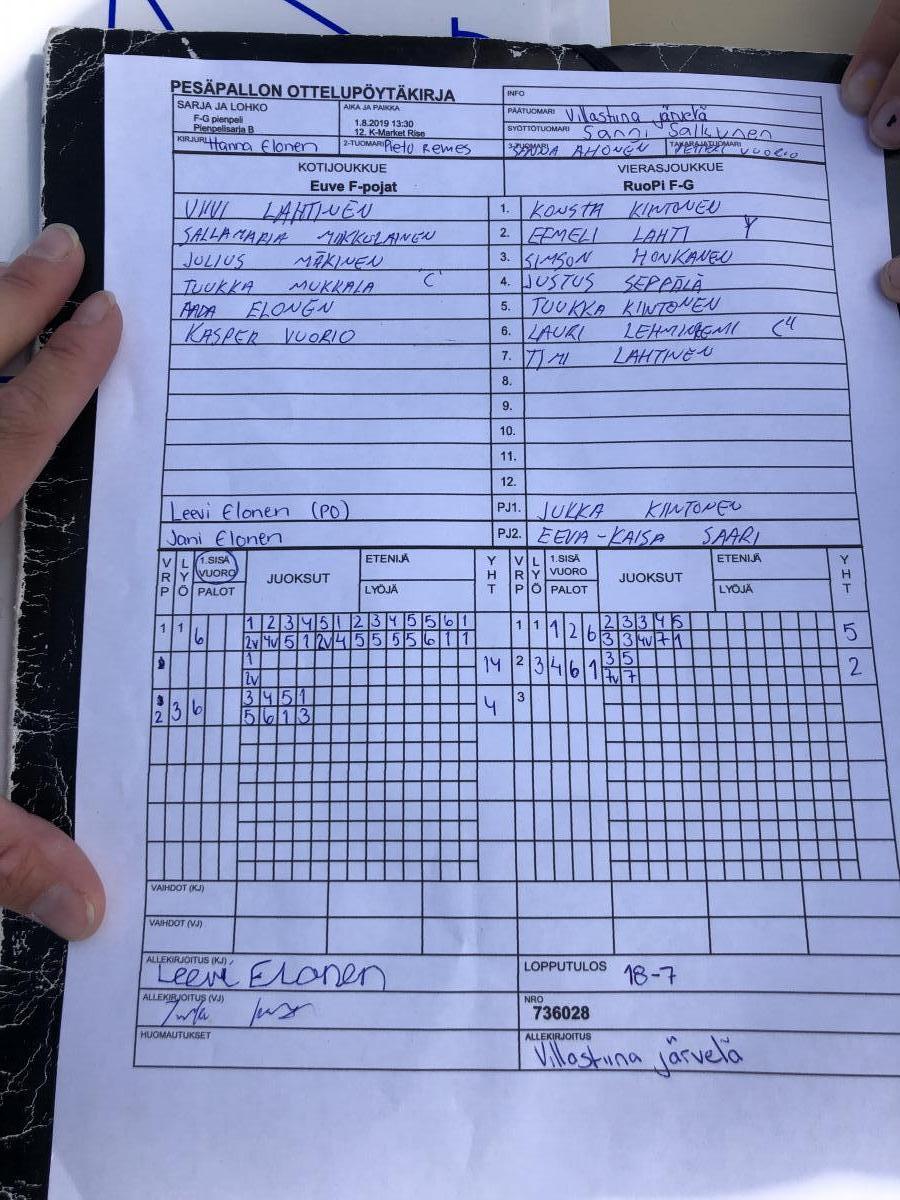 PESÄPALLON OTTELUPÖYTÄKIRJA
INFO
SARJA JA LOHKO
F-G pienpeli
Pienpelisarja B
AIKA JA PAIKKA
1.8.2019 13:30
12. K-Market Rise
PÄÄTUOMARI Villastiina järvelä
SYÖTTÖTUOMARI Sanni Salkynen
KIRJURI Hanna Elonen
2-TUOMARI Pieto Remes
3-TUOMARI SANDA AHONEN
TAKARAJATUOMARI PETTERI VUORIO
KOTIJOUKKUE
Euve F-pojat
VIERASJOUKKUE
RuoPi F-G
VIIVI LAHTINEN 1. KONSTA KIINTONEN
SALLAMARIA MIKKULAINEN 2. EEMELI LAHTI Y
JULIUS MÄKINEN 3. SIMSON HONKANEN
TUUKKA MUKKALA C 4. JUSTUS SEPPÄLÄ
AADA ELONEN 5. TUUKKA KIINTONEN
KASPER VUORIO 6. LAURI LEHMINIEMI C4
7. TIMI LAHTINEN
8.
9.
10.
11.
12.
Leevi Elonen (PO) PJ1. JUKKA KIINTONEN
Jani Elonen PJ2. EEVA-KAISA SAARI
VRP LYÖ 1.SISÄ VUORO PALOT JUOKSUT ETENIJÄ LYÖJÄ YHT VRP LYÖ 1.SISÄ VUORO PALOT JUOKSUT ETENIJÄ LYÖJÄ YHT
1 1 6 1 2 3 4 5 1 2 3 4 5 5 6 1 1 1 1 2 6 2 3 3 4 5 5
2v 4v 5 1 2v 4 5 5 5 5 6 1 1 3 3 4v 7 1
1 14 2 3 4 6 1 3 5 2
2v 7v 7
2 3 6 3 4 5 1 4 3
5 6 1 3
VAIHDOT (KJ)
VAIHDOT (VJ)
ALLEKIRJOITUS (KJ) Leevi Elonen
LOPPUTULOS 18-7
ALLEKIRJOITUS (VJ)
NRO
736028
HUOMAUTUKSET
ALLEKIRJOITUS
Villastiina järvelä